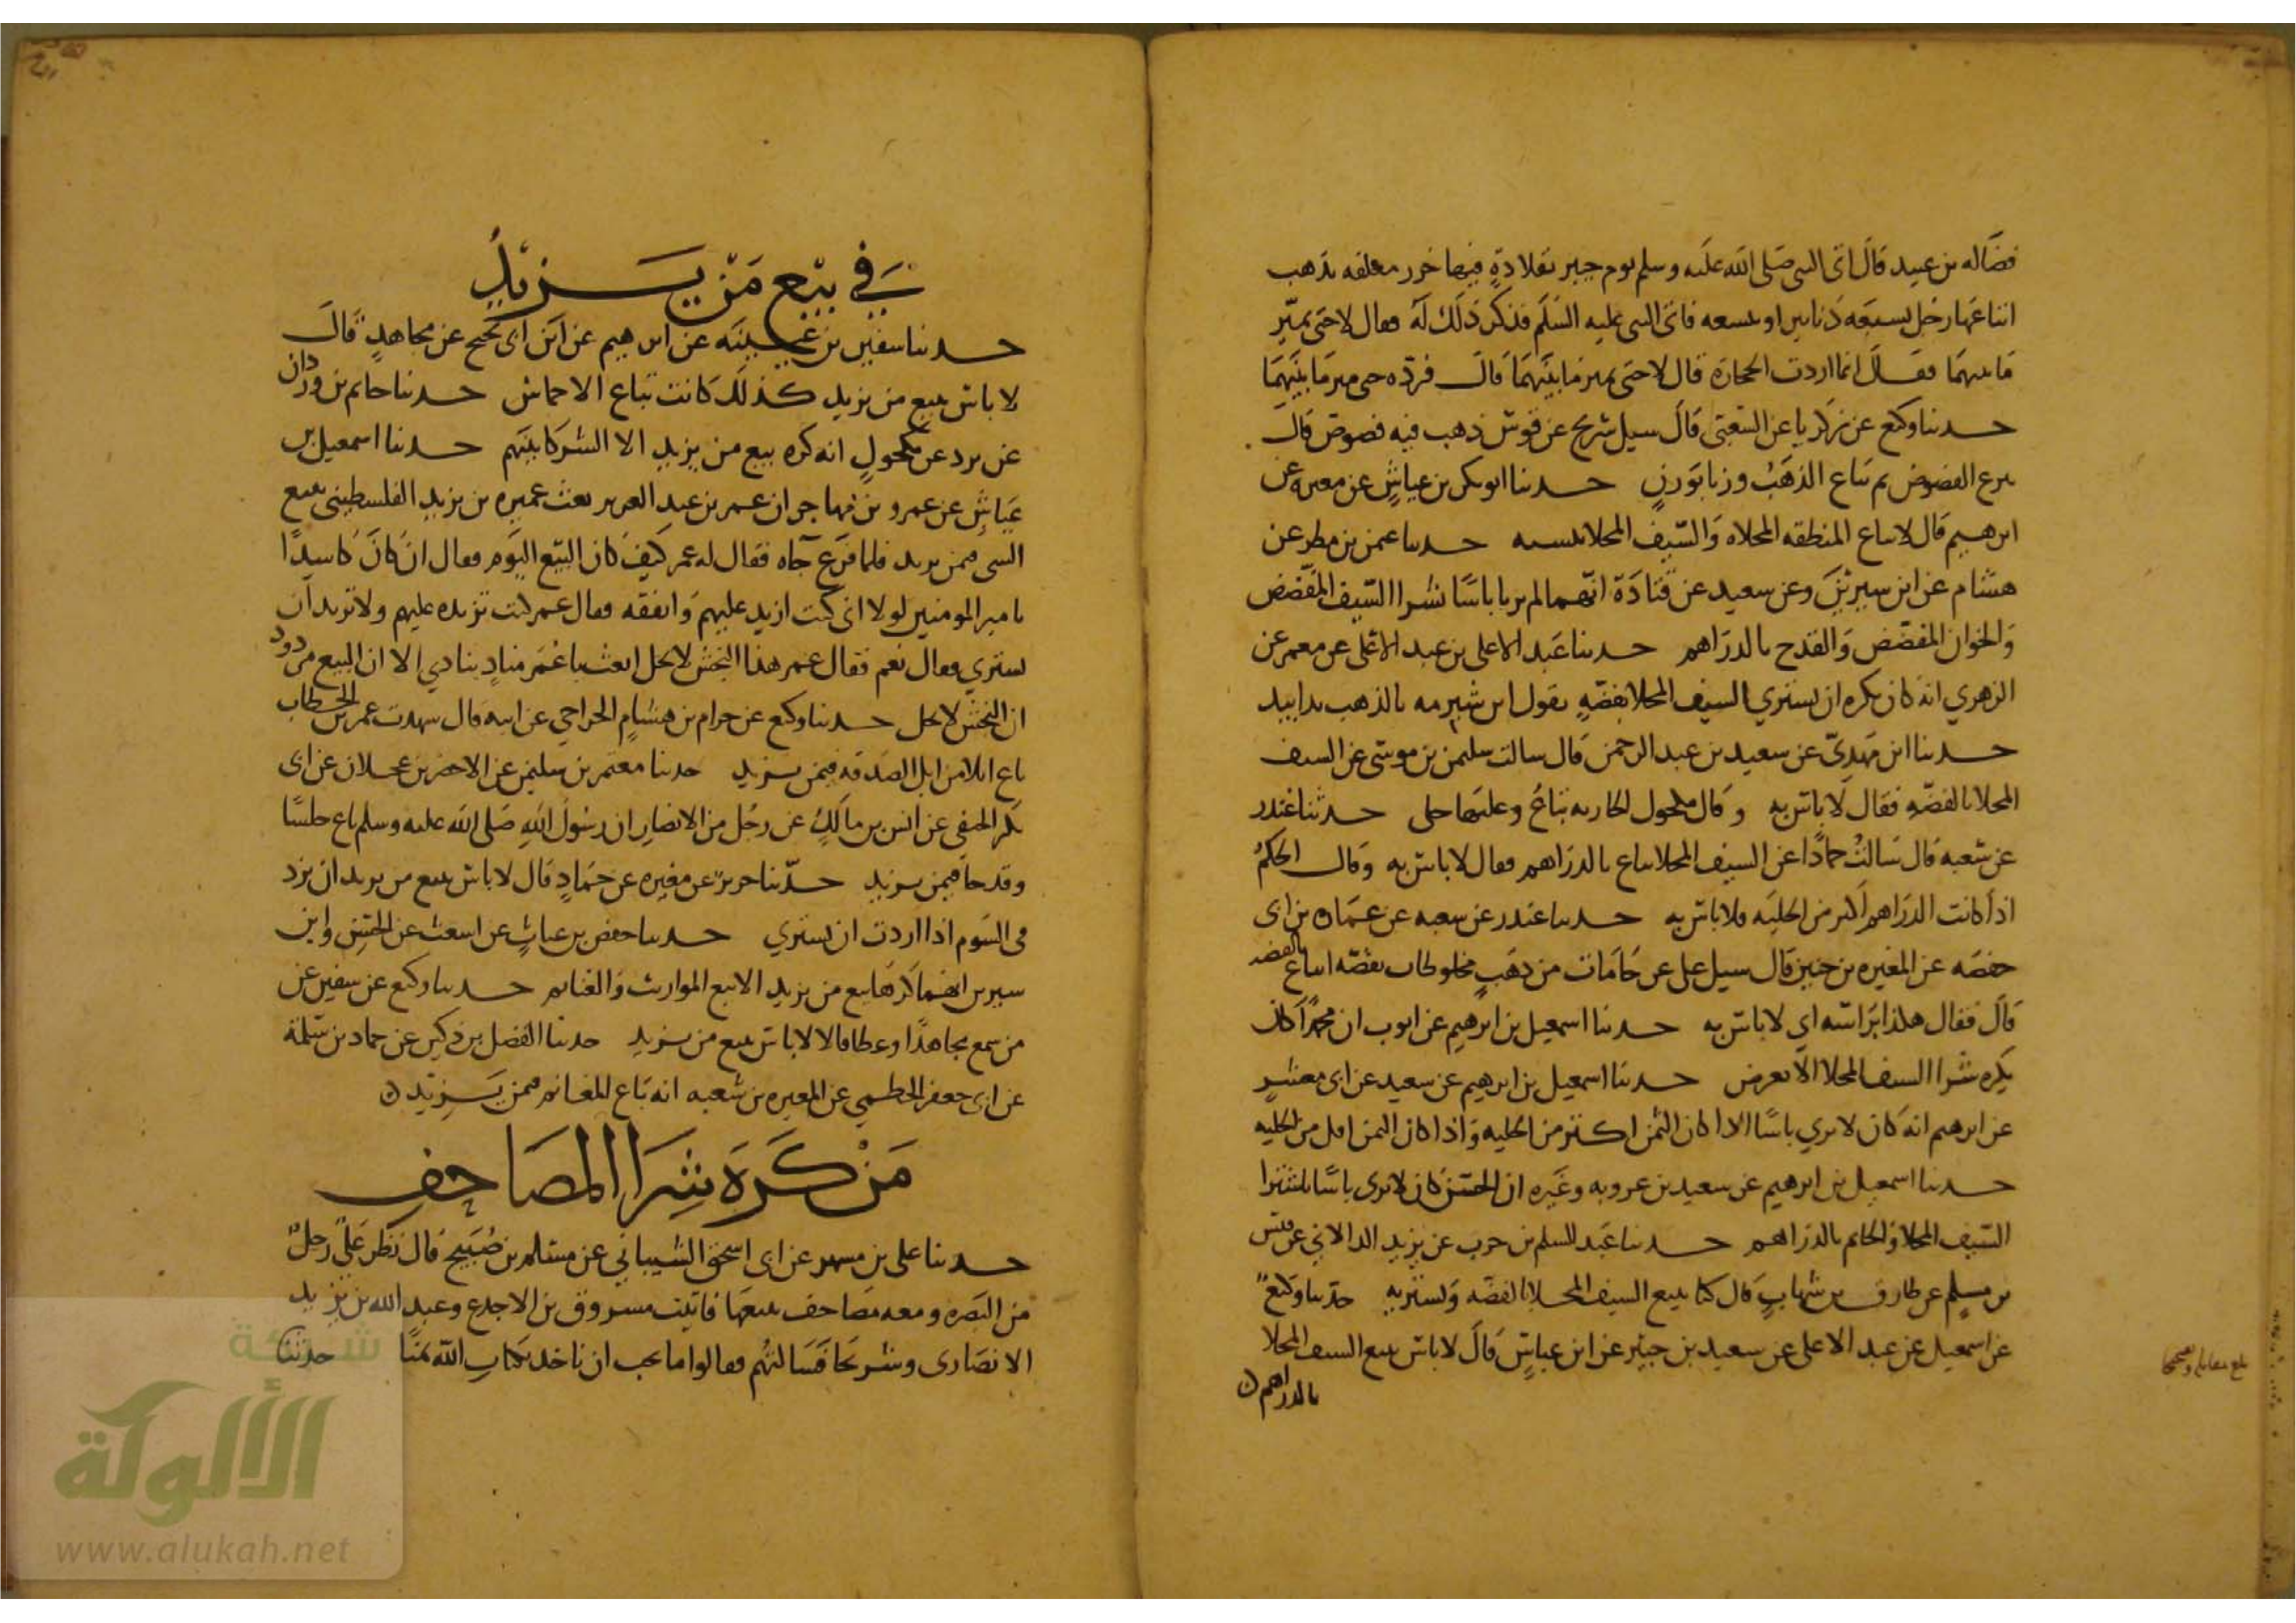 فضاله بن عبيد قال اتى النبي صلى الله عليه وسلم يوم خيبر بقلادة فيها خرز معلقه بذهب
ابتاعها رجل بسبعه دنانير او بتسعه فاتى النبي عليه السلم فذكر ذلك له فقال لا حتى يميز
ما بينهما فقال انما اردت الحجارة قال لا حتى يميز ما بينهما قال فرده حتى ميز ما بينهما
حدثنا وكيع عن زكريا عن الشعبي قال سيل شريح عن قوش ذهب فيه فصوص قال
ينزع الفصوص ثم تباع الذهب وزنا بوزن حدثنا ابو بكر بن عياش عن مغيره عن
ابرهيم قال لا يباع المنطقه المحلاه والسيف المحلا بنسيه حدثنا عمن بن مطر عن
هشام عن ابن سيرين وعن سعيد عن قتادة انهما لم يريا باسا بشرا السيف المفضض
والخوان المفضض والقدح بالدراهم حدثنا عبد الاعلى بن عبد الاعلى عن معمر عن
الزهري انه كان يكره ان يشتري السيف المحلا بفضه يقول ابن شبرمه بالذهب يدا بيد
حدثنا ابن مهدي عن سعيد بن عبد الرحمن قال سالت سليمن بن موسى عن السيف
المحلا بالفضه فقال لا باس به وقال مكحول الجاريه تباع وعليها حلى حدثنا غندر
عن شعبه قال سالت حمادا عن السيف المحلا يباع بالدراهم فقال لا باس به وقال الحكم
اذا كانت الدراهم اكثر من الحليه فلا باس به حدثنا غندر عن شعبه عن عمان بن ابى
حفصه عن المغيره بن حنين قال سيل علي عن جامات من ذهب مخلوطات بفضه اتباع بالفضه
قال فقال هكذا براسه اي لا باس به حدثنا اسمعيل بن ابرهيم عن ايوب ان محمدا كان
يكره شرا السيف المحلا الا بعرض حدثنا اسمعيل بن ابرهيم عن سعيد عن ابى معشر
عن ابرهيم انه كان لا يرى باسا الا اذا كان الثمن اكثر من الحليه واذا كان الثمن اقل من الحليه
حدثنا اسمعيل بن ابرهيم عن سعيد بن عروبه وغيره ان الحسن كان لا يرى باسا باشترا
السيف المحلا والخاتم بالدراهم حدثنا عبد السلم بن حرب عن يزيد الدالاني عن قيس
بن مسلم عن طارق بن شهاب قال كنا نبيع السيف المحلا بالفضه ونشتريه حدثنا وكيع
عن اسمعيل عن عبد الاعلى عن سعيد بن جبير عن ابن عباس قال لا باس ببيع السيف المحلا
بالدراهم
بلغ مقابله وتصحيحا
في بيع من يزيد
حدثنا سفين بن عيينه عن ابرهيم عن ابن ابى نجيح عن مجاهد قال
لا باس ببيع من يزيد كذلك كانت تباع الاخماس حدثنا حاتم بن وردان
عن برد عن مكحول انه كره بيع من يزيد الا الشركا بينهم حدثنا اسمعيل بن
عياش عن عمرو بن مهاجر ان عمر بن عبد العزيز بعث عميره بن يزيد الفلسطيني ببيع
السبي فمن يزيد فلما فرغ جاه فقال له عمر كيف كان البيع اليوم فقال ان كان كاسدا
يا امير المومنين لولا اني كنت ازيد عليهم وانفقه فقال عمر كنت تزيده عليهم ولا تريد ان
تشتري فقال نعم فقال عمر هذا النجش لا يحل ابعث يا عمر مناد ينادي الا ان البيع مردود
ان النجش لا يحل حدثنا وكيع عن حزام بن هشام الخزاعي عن ابيه قال شهدت عمر بن الخطاب
باع ابلا من ابل الصدقه فيمن يزيد حدثنا معتمر بن سليمن عن الاخضر بن عجلان عن ابى
بكر الحنفي عن انس بن مالك عن رجل من الانصار ان رسول الله صلى الله عليه وسلم باع حلسا
وقدحا فيمن يزيد حدثنا جرير عن مغيره عن حماد قال لا باس ببيع من يزيد ان يزد
في السوم اذا اردت ان تشتري حدثنا حفص بن غياث عن اشعث عن الحسن وابن
سيرين انهما كرها بيع من يزيد الا بيع المواريث والغنايم حدثنا وكيع عن سفين عن
من سمع مجاهدا وعطا قالا لا باس ببيع من يزيد حدثنا الفضل بن دكين عن حماد بن سلمة
عن ابى جعفر الخطمي عن المغيره بن شعبه انه باع المغانم فمن يزيد
من كره شرا المصاحف
حدثنا علي بن مسهر عن ابى اسحق الشيباني عن مسلم بن صبيح قال نظر علي رجل
من البصره ومعه مصاحف يبيعها فاتيت مسروق بن الاجدع وعبد الله بن يزيد
الانصارى وشريحا فسالتهم فقالوا ما نحب ان ناخذ بكتاب الله ثمنا حدثنا
شبكة
الألوكة
www.alukah.net